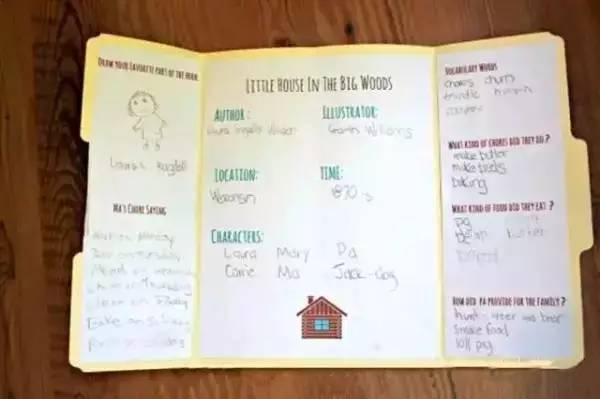 DRAW YOUR FAVORITE PART OF THE BOOK
Laura's
MA'S CHORE SAYING
Monday
on
Mend on
on Thursday
clean on Friday
Bake on
on
LITTLE HOUSE IN THE BIG WOODS
AUTHOR:
Laura Ingalls Wilder
ILLUSTRATOR:
Garth Williams
LOCATION:
Wisconsin
TIME:
1870's
CHARACTERS:
Laura Mary Pa
Carrie Ma Jack-dog
VOCABULARY WORDS
chores churn
trundle
WHAT KIND OF CHORES DID THEY DO?
make butter
make beds
baking
WHAT KIND OF FOOD DID THEY EAT?
pig
butter
bread
HOW DID PA PROVIDE FOR THE FAMILY?
hunt-deer and bear
smoke food
kill pig